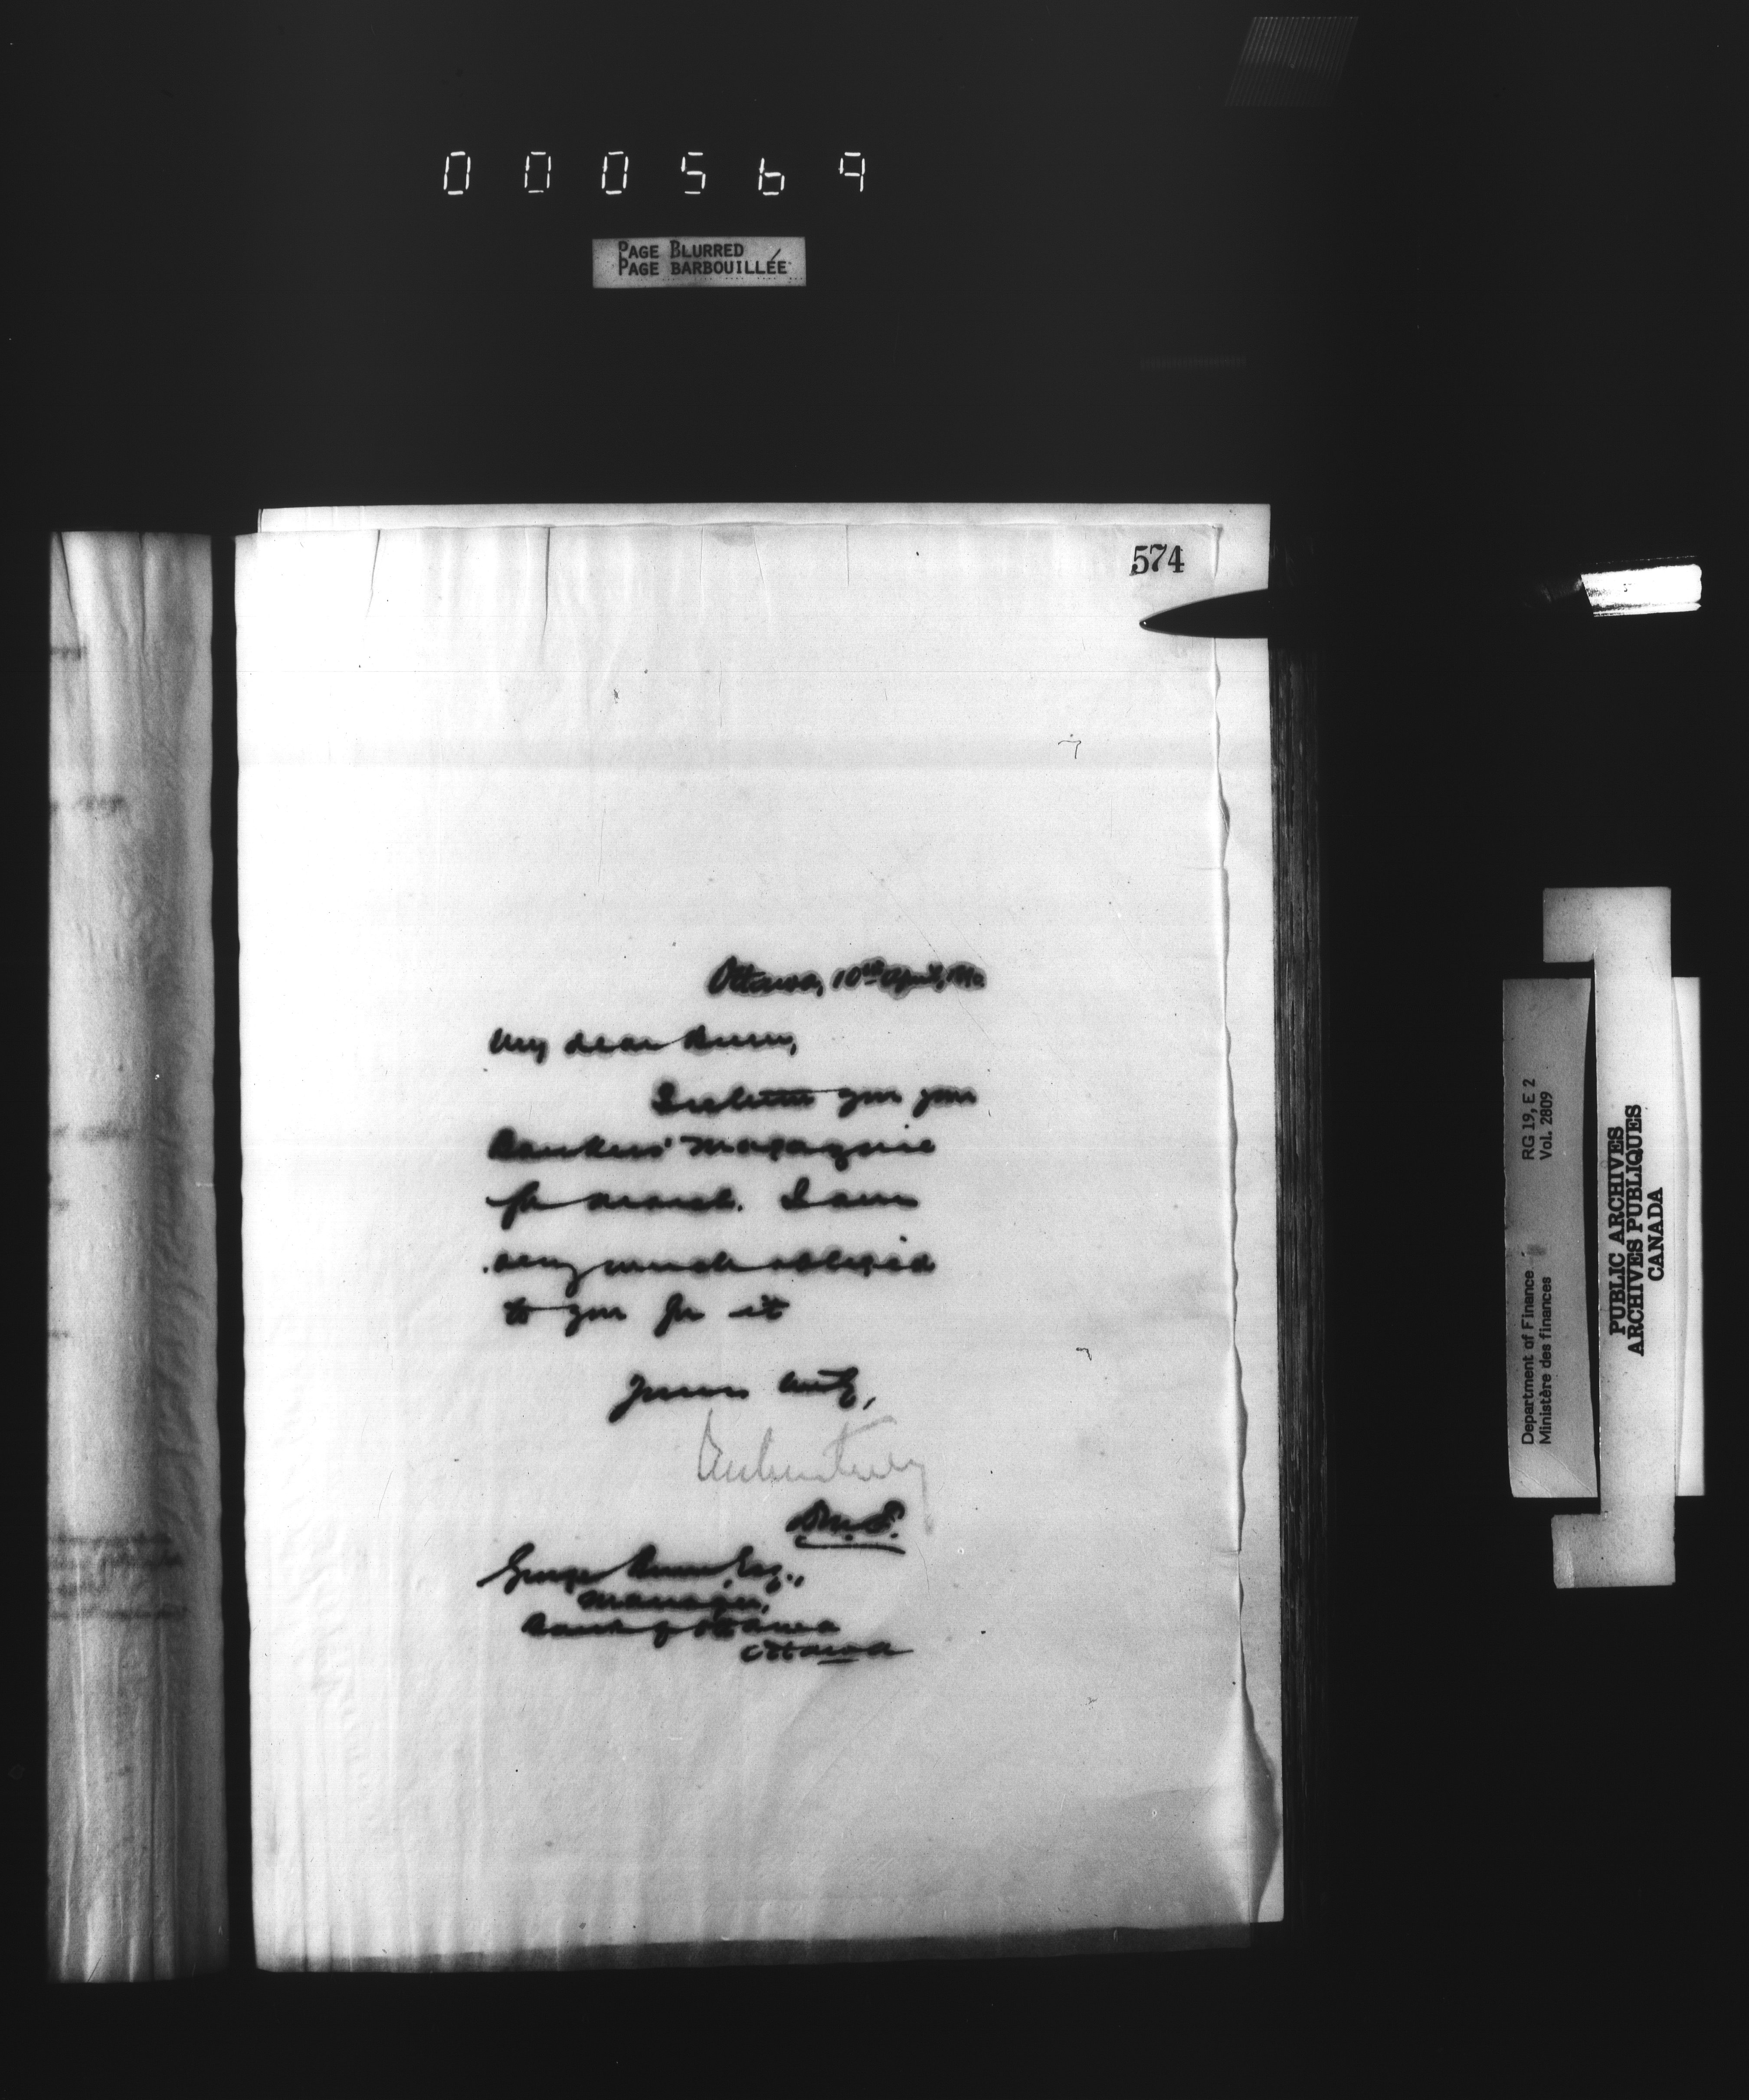 000569
PAGE BLURRED
PAGE BARBOUILLÉE
574
Ottawa, 10th April,
My dear Burn,
I return you your
Bankers' Magazine
for March. I am
very much obliged
to you for it
Yours truly,
D.M.F.
George Burn, Esq.,
Manager,
Bank of Ottawa
Ottawa
RG 19, E 2
Vol. 2809
Department of Finance
Ministère des finances
PUBLIC ARCHIVES
ARCHIVES PUBLIQUES
CANADA